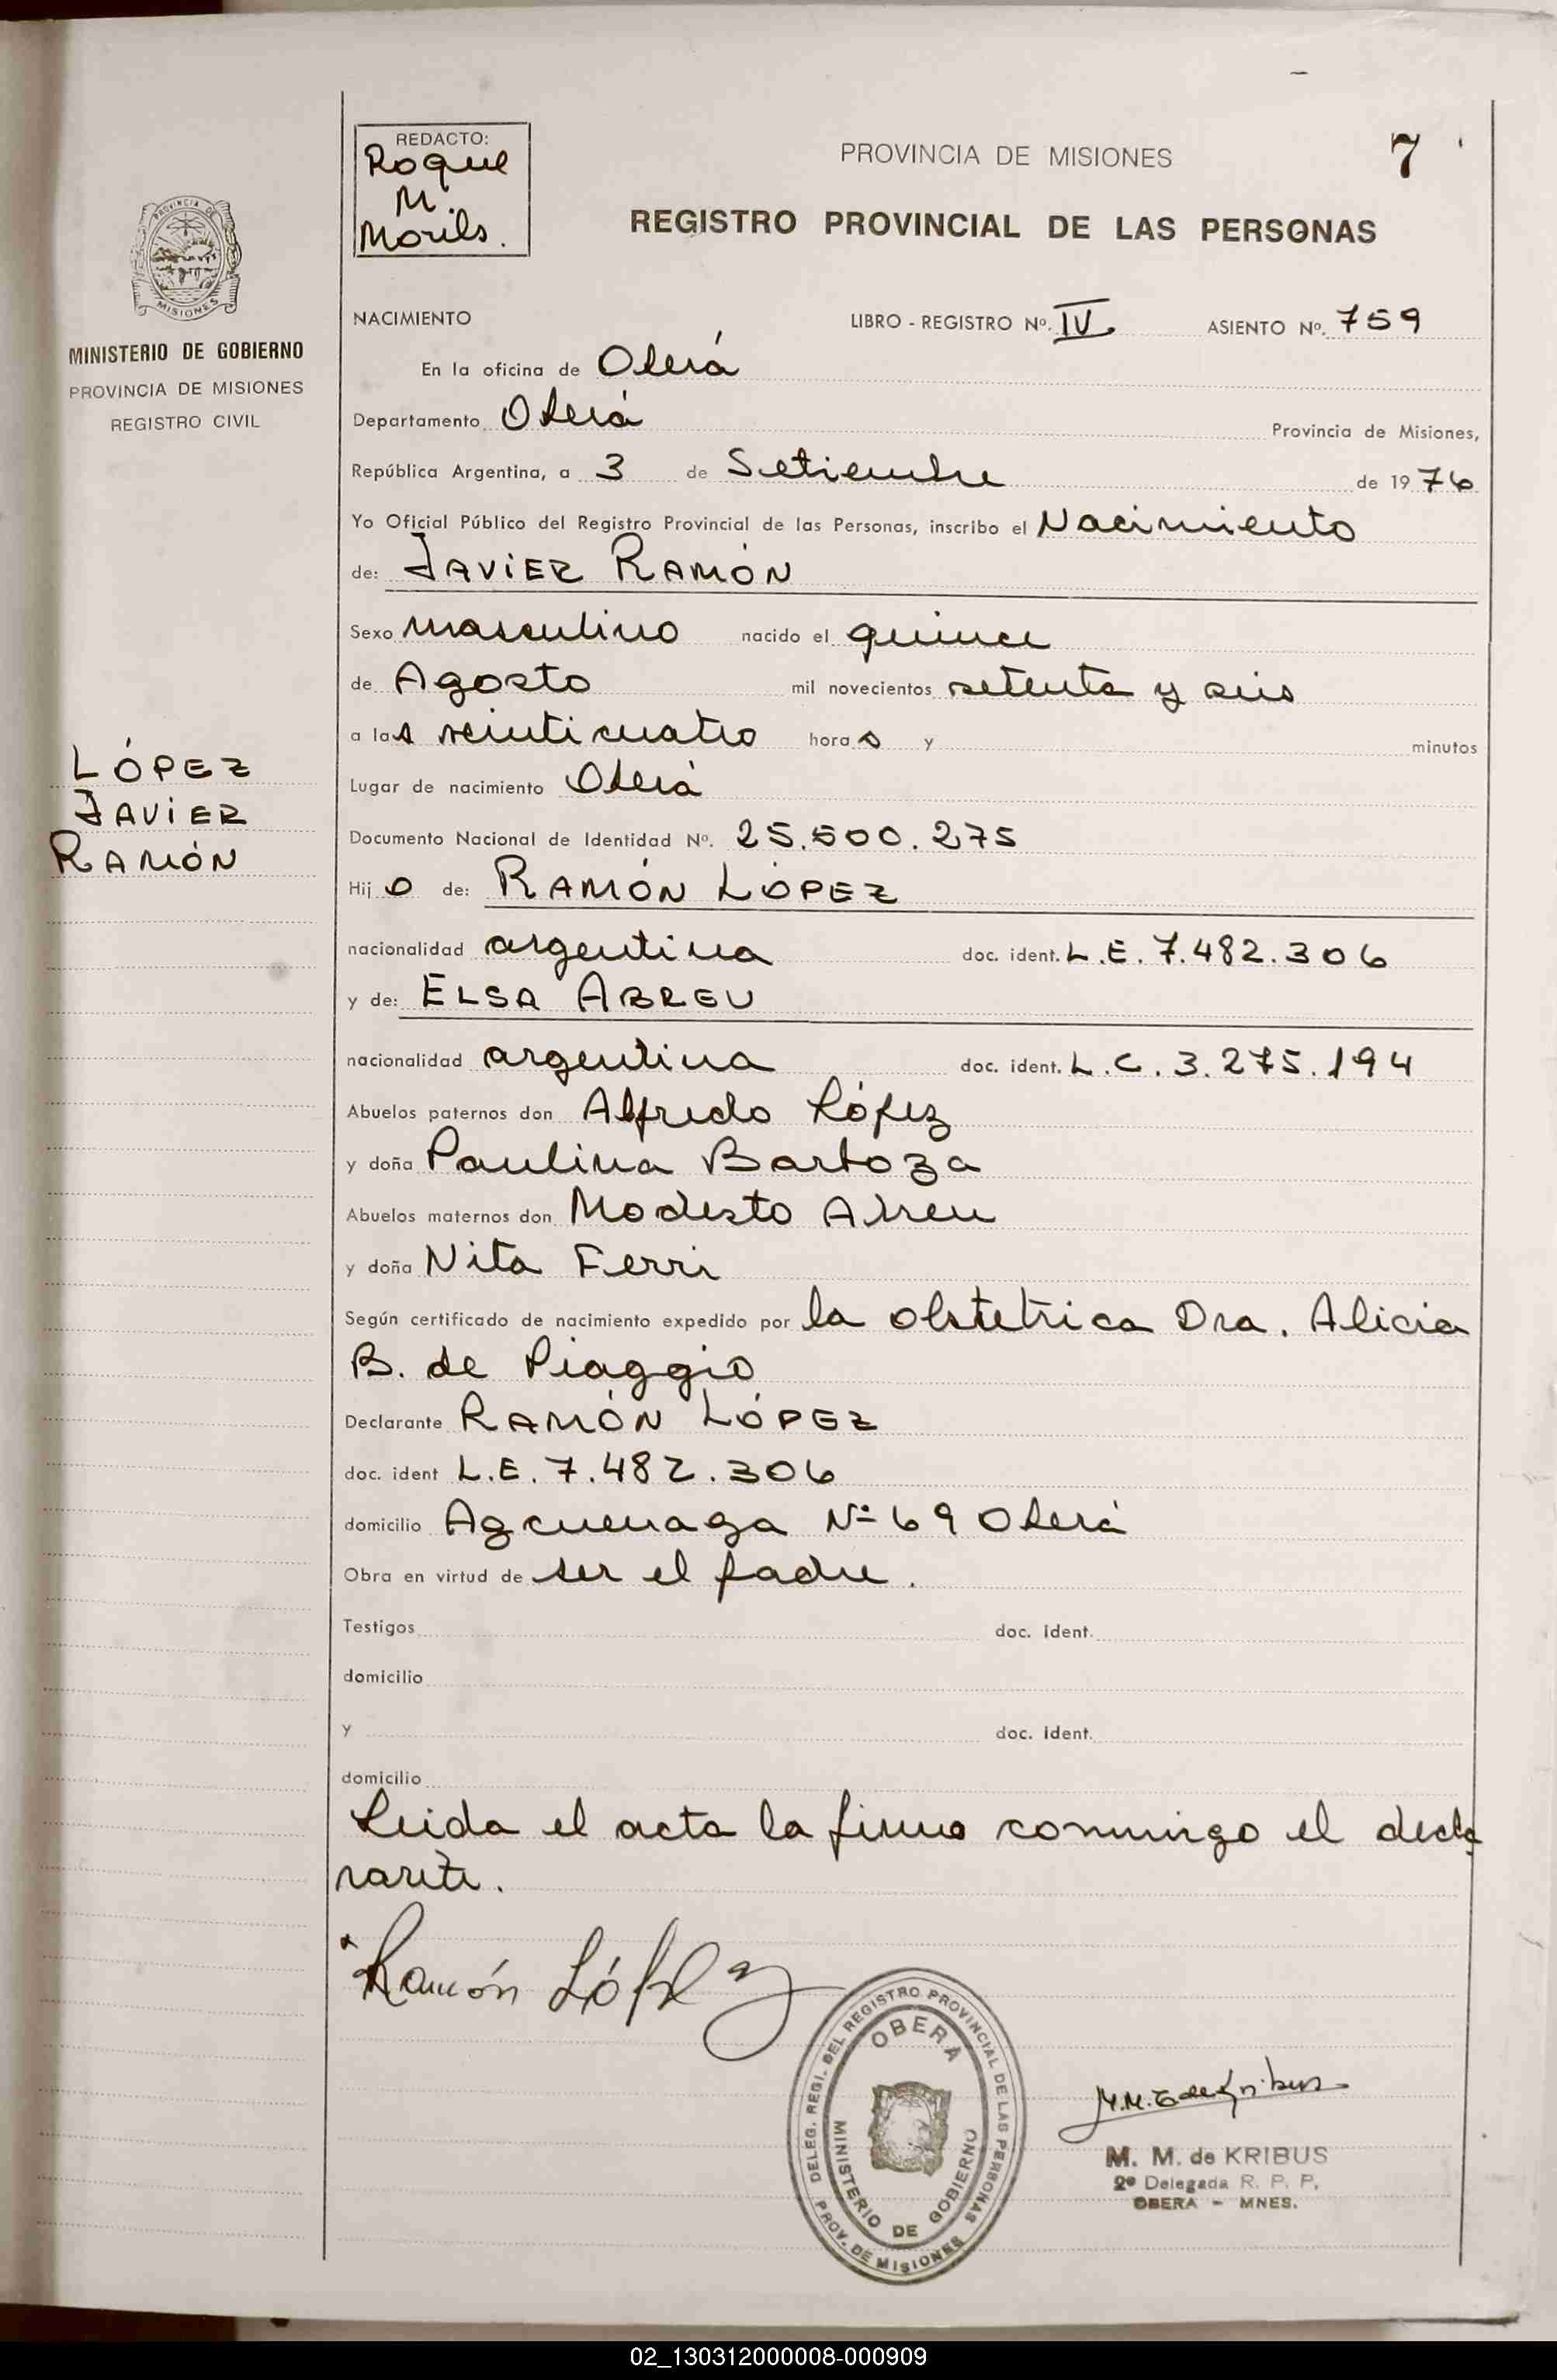 REDACTO:
Roque
M.
Morils.
PROVINCIA DE MISIONES
7
REGISTRO PROVINCIAL DE LAS PERSONAS
PROVINCIA DE
MISIONES
MINISTERIO DE GOBIERNO
PROVINCIA DE MISIONES
REGISTRO CIVIL
LÓPEZ
JAVIER
RAMÓN
NACIMIENTO LIBRO - REGISTRO Nº. IV ASIENTO Nº. 759
En la oficina de Oberá
Departamento Oberá Provincia de Misiones,
República Argentina, a 3 de Setiembre de 1976
Yo Oficial Público del Registro Provincial de las Personas, inscribo el Nacimiento
de: JAVIER RAMÓN
Sexo masculino nacido el quince
de Agosto mil novecientos setenta y seis
a las veinticuatro horas y minutos
Lugar de nacimiento Oberá
Documento Nacional de Identidad Nº. 25.500.275
Hijo de: RAMÓN LÓPEZ
nacionalidad argentina doc. ident. L.E. 7.482.306
y de: ELSA ABREU
nacionalidad argentina doc. ident. L.C. 3.275.194
Abuelos paternos don Alfredo López
y doña Paulina Barboza
Abuelos maternos don Modesto Abreu
y doña Nita Ferri
Según certificado de nacimiento expedido por la obstetrica Dra. Alicia
B. de Piaggio
Declarante RAMÓN LÓPEZ
doc. ident L.E. 7.482.306
domicilio Agcuenaga Nº 69 Oberá
Obra en virtud de ser el padre.
Testigos doc. ident.
domicilio
y doc. ident.
domicilio
Leida el acta la firma conmigo el decla
rante.
Ramón López
DELEG. REGI. DEL REGISTRO PROVINCIAL DE LAS PERSONAS
PROV. DE MISIONES
OBERA
MINISTERIO DE GOBIERNO
M. M. de KRIBUS
2º Delegada R. P. P.
OBERA - MNES.
02_130312000008-000909